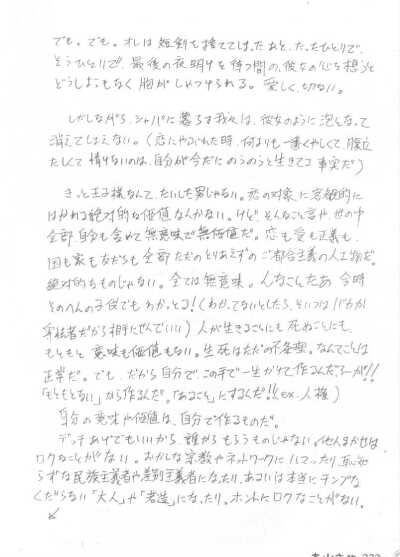 でも。でも。オレは短剣も捨ててしまったあと、たったひとりで、
そうひとりで、最後の夜明けを待つ間の、彼女の心を想うと
どうしようもなく胸がしめつけられる。愛しく、切ない。
しかしながら、シャバに暮らす我々は、彼女のように泡となって
消えてしまえない。(恋にやぶれた時、何よりも一番くやしくて、腹立
たしくて情けないのは、自分が今だにのうのうと生きてる事実だ)
きっと王子様なんて、たいした男じゃない。恋の対象に客観的に
はかれる絶対的な価値なんかない。けど、そんなこと言や、世の中
全部、自分も含めて無意味で無価値だ。恋も愛も正義も、
国も家も友だちも全部ただのとりあえずのご都合主義の人工物だ。
絶対的なものじゃない。全ては無意味。んなこたあ今時
そのへんの子供でもわかっとる!(わかってないとしたら、そいつはバカか
卑怯者だから相手にせんでいい)人が生きることにも死ぬことにも、
もともと意味も価値もない。生死はただの不条理。なんてことは
正常だ。でも、だから自分で、この手で一生かけて作るんだろーが!!
「もともとない」から作るんだ。「あること」にするんだ!!(ex.人権)
自分の意味や価値は、自分で作るものだ。
デッチあげでもいいから。誰からもらうものじゃない。他人まかせは
ロクなことがない。おかしな宗教やネットワークにハマったり、恥知
らずな民族主義者や差別主義者になったり、あるいは本当にチンプな
くだらない「大人」や「若造」になったり。ホントにロクなことがない。